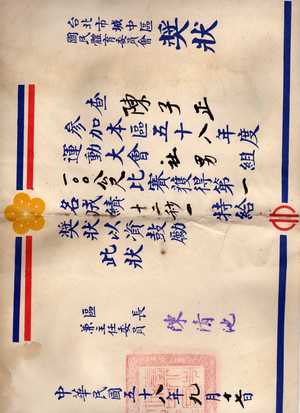 台北市城中區
國民體育委員會
獎狀
查陳子正
參加本區五十八年度
運動大會社男組
一〇〇公尺比賽獲得第一
名成績十二秒一特給
獎狀以資鼓勵
此狀
區長
兼主任委員
陳清池
中華民國五十八年九月十七日